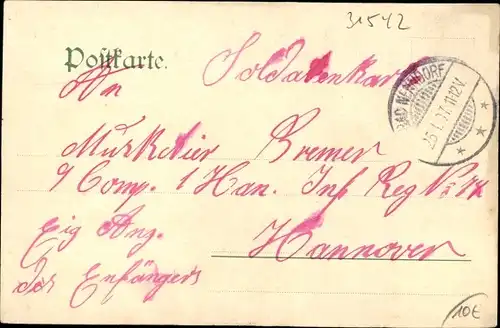 31542
Postkarte.
Soldatenkarte
An
BAD NENNDORF
25.1.07. 11-12 V.
Musketier Bremer
9 Comp. 1 Han. Inf Reg No 74
Eig Ang.
Hannover
des Enfängers
10€